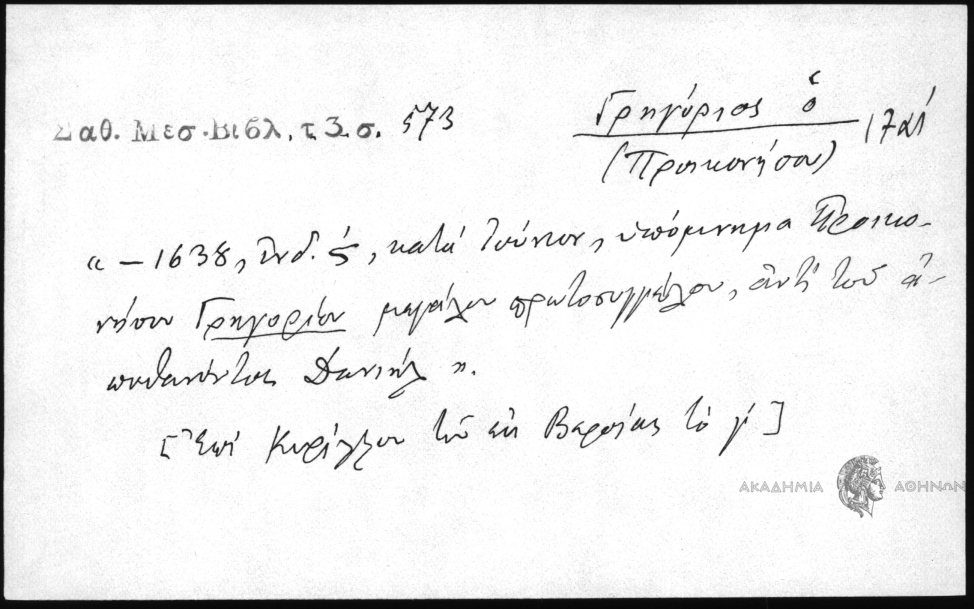 Σαθ. Μεσ. Βιβλ, τ. 3 σ. 573
Γρηγόριος ὁ
(Προικονήσου)
17 αἰ
« – 1638, ἰνδ. ς´, κατὰ Ἰούνιον, ὑπόμνημα Προικο-
νήσου Γρηγορίου μεγάλου πρωτοσυγγέλου, ἀντὶ τοῦ ἀ-
ποθανόντος Δανιήλ ».
[Ἐπὶ Κυρίλλου τοῦ ἐκ Βερροίας τὸ γ´]
ΑΚΑΔΗΜΙΑ ΑΘΗΝΩΝ